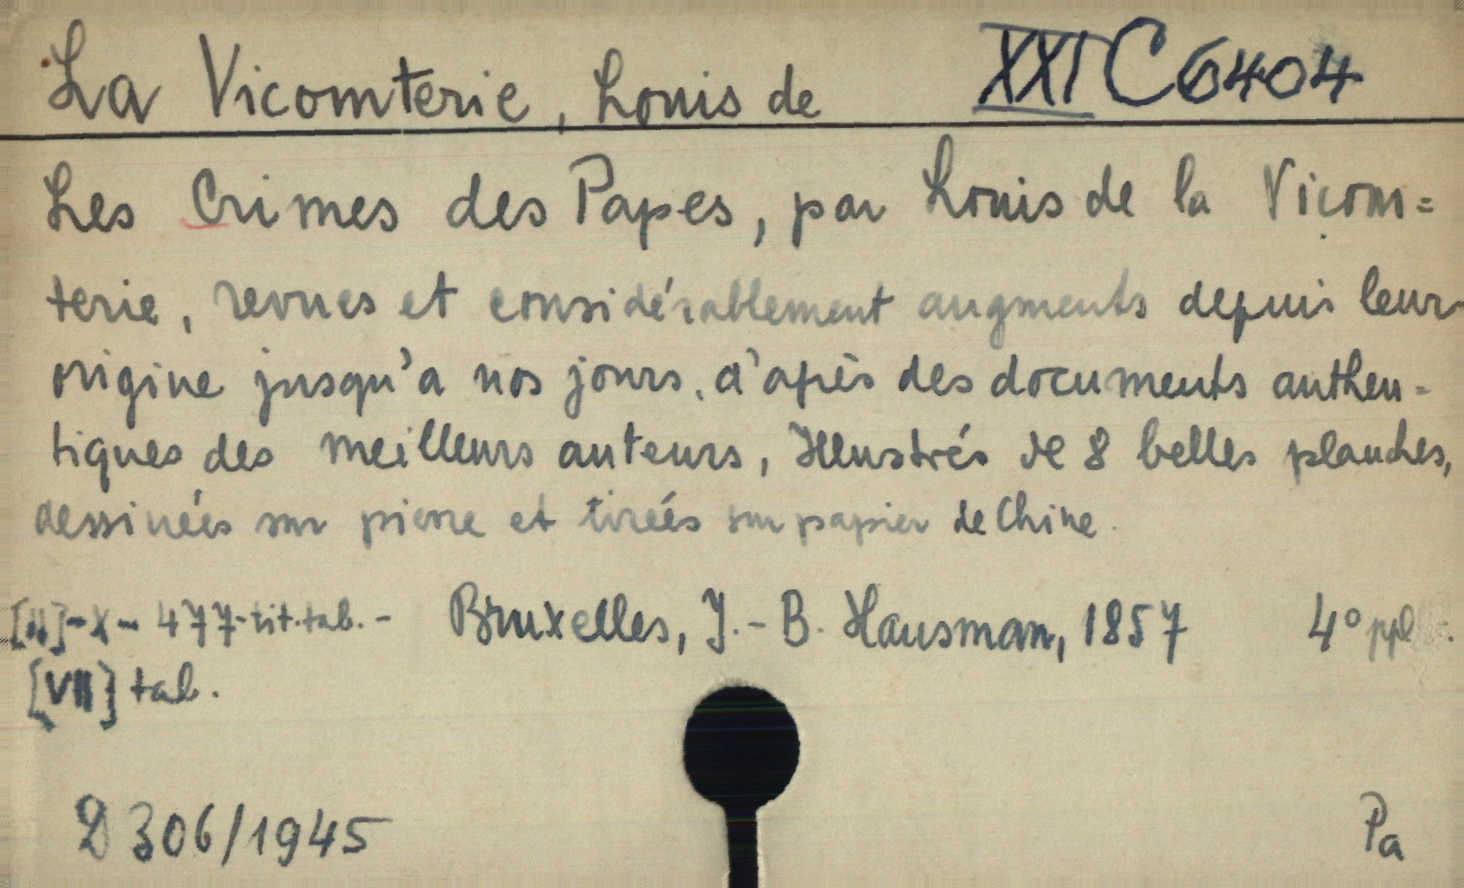 La Vicomterie, Louis de XXI C 6404
Les Crimes des Papes, par Louis de la Vicom=
terie, revues et considérablement augments depuis leur
origine jusqu'a nos jours, d'après des documents authen=
tiques des meilleurs auteurs, Illustrés de 8 belles planches,
dessinées sur pierre et tirées sur papier de Chine.
[II]-X-477-tit.tab.- Bruxelles, J.-B. Hausman, 1857 4° ppl
[VII] tab.
D 306/1945 Pa